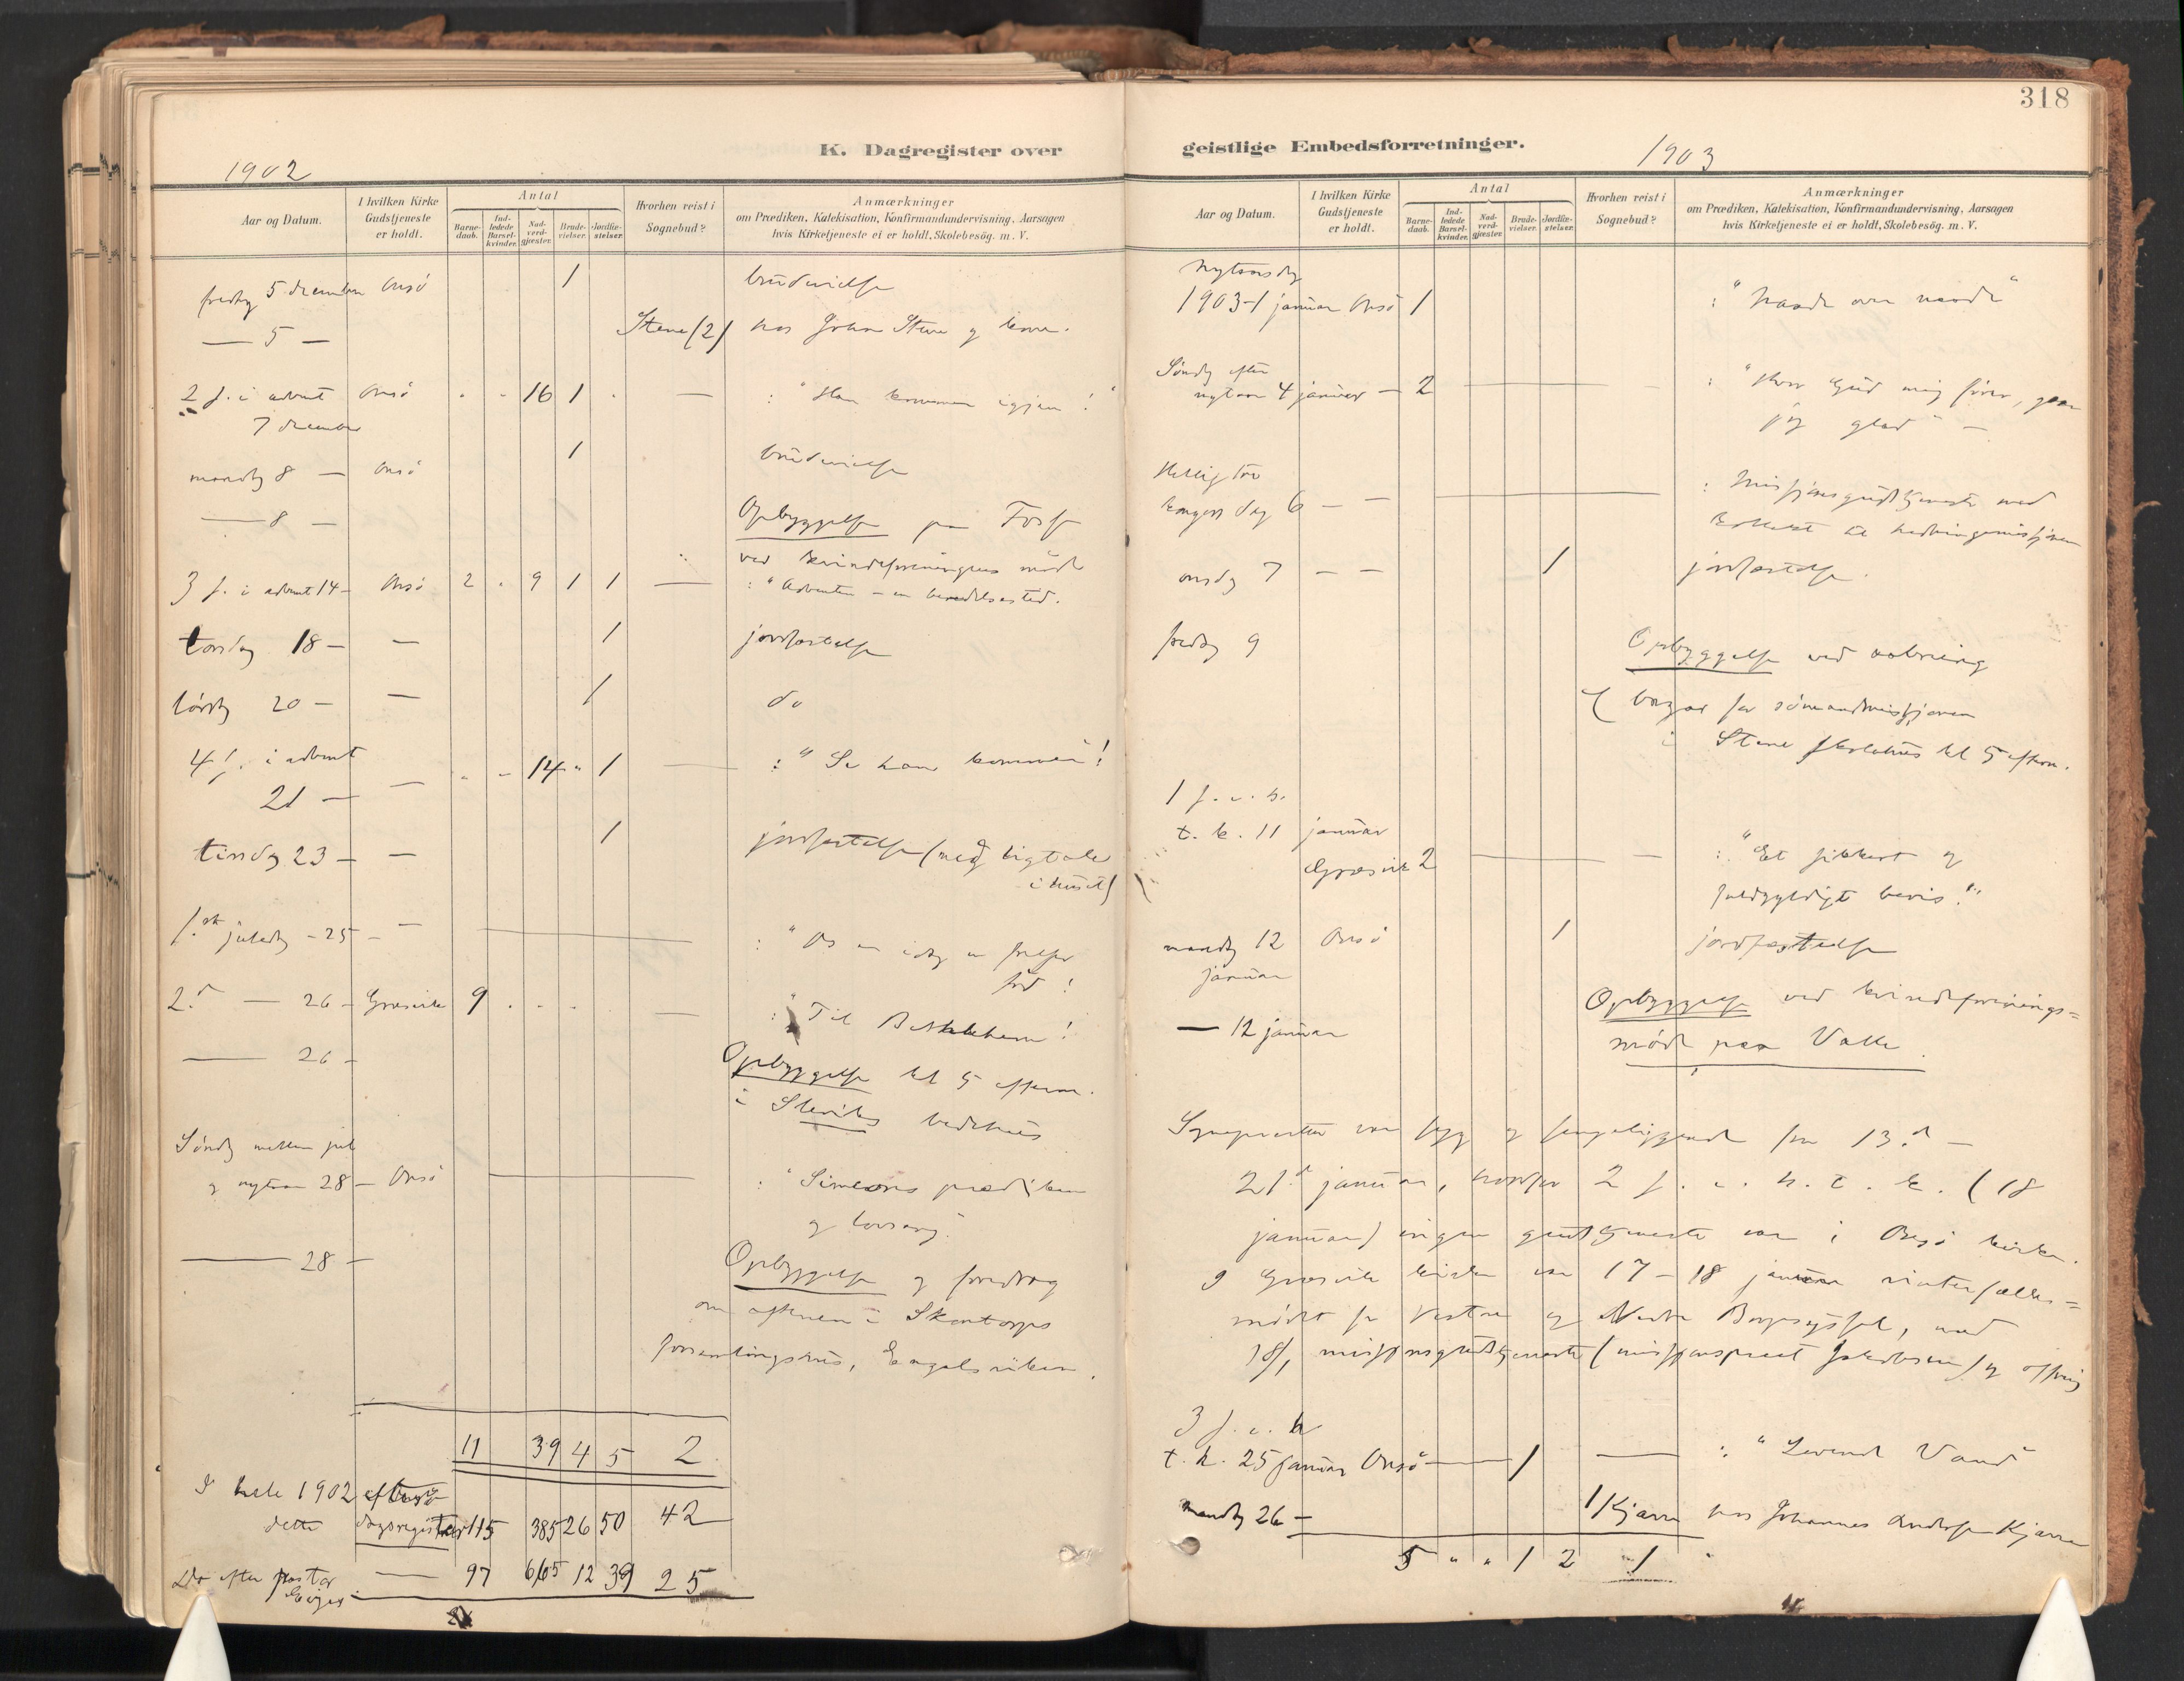 K. Dagregister over
1902
Aar og Datum.
I hvilken Kirke Gudstjeneste er holdt.
Antal
Barnedaab.
Indledede Barselkvinder.
Nadverdgjæster.
Brudevielser.
Jordfæstelser.
Hvorhen reist i Sognebud?
Anmærkninger
om Prædiken, Katekisation, Konfirmandundervisning, Aarsagen
hvis Kirketjeneste ei er holdt, Skolebesøg. m. V.
fredag 5 december Onsö 1 brudevielse
— 5 — Stene (2) hos Johan Stene og kone.
2 s. i advent Onsö " " 16 1 " — : "Han kommer igjen!"
7 december
mandag 8 — Onsö 1 brudevielse
— 8 — Opbyggelse paa Foss
ved kvindeforeningens möde
3 s. i advent 14 — Onsö 2 " 9 1 1 — : "Adventen – en beredelsestid.
torsdag 18 — — 1 jordfæstelse
lörsdag 20 — — 1 do
4 s. i advent
21 — — " " 14 " 1 — : "Se han kommer!
tirsdag 23 — — 1 jordfæstelse (med ligtale
i huset)
1.ste juledag – 25 – — : "Os er idag en frelser
född!
2.d — 26 – Græsvik 9 " " " — : "Til Bethlehem!
— 26 – Opbyggelse kl 5 efterm.
i Sleviks bedehus
Söndag mellem jul
og nytaar 28 – Onsö : "Simeons prædiken
og lovsang.
— 28 – Opbyggelse og foredrag
om aftenen i Skantorps
forsamlingshus, Engelsviken.
11 39 4 5 2
I hele 1902 efter
dette dagsregister 115 385 26 50 42
Do efter pastor — 97 665 12 39 25
318
geistlige Embedsforretninger.
1903
Aar og Datum.
I hvilken Kirke Gudstjeneste er holdt.
Antal
Barnedaab.
Indledede Barselkvinder.
Nadverdgjæster.
Brudevielser.
Jordfæstelser.
Hvorhen reist i Sognebud?
Anmærkninger
om Prædiken, Katekisation, Konfirmandundervisning, Aarsagen
hvis Kirketjeneste ei er holdt, Skolebesøg. m. V.
Nytaarsdag
1903 – 1 januar Onsö 1 : "Naade over naade"
Söndag efter
nytaar 4 januar — 2 — : "Hvor Gud mig förer, gaar
jeg glad" –
Hellig tre
kongers dag 6 — — : Missjonsgudstjeneste med
kollekt til hedningemissjonen
onsdag 7 — — 1 jordfæstelse.
fredag 9 Opbyggelse ved aabning
af bazar for sömandsmissjonen
i Stene skolehus kl 5 efterm.
1 s. e. h.
t. k. 11 januar
Græsvik 2 — : "Et sikkert og
fuldgyldigt bevis."
mandag 12 Onsö 1 jordfæstelse
januar
— 12 januar Opbyggelse ved kvindeforenings=
möde paa Valle.
Sognepresten var syg og sengeliggende fra 13.d –
21.d januar, hvorfor 2 s. e. h. t. k. (18
januar) ingen gudstjeneste var i Onsö kirke.
I Græsvik kirke var 17–18 januar vinterfælles=
mödet for Vestre og Nedre Borgesyssel, med
18/1 missjonsgudstjeneste (missjonsprest Jakobsen) og ofring
3 s. e. h
t. k. 25 januar Onsö — 1 — : "Levende Vand"
mandag 26 — 1 Kjære hos Johannes Andersen Kjære
5 " " 1 2 1